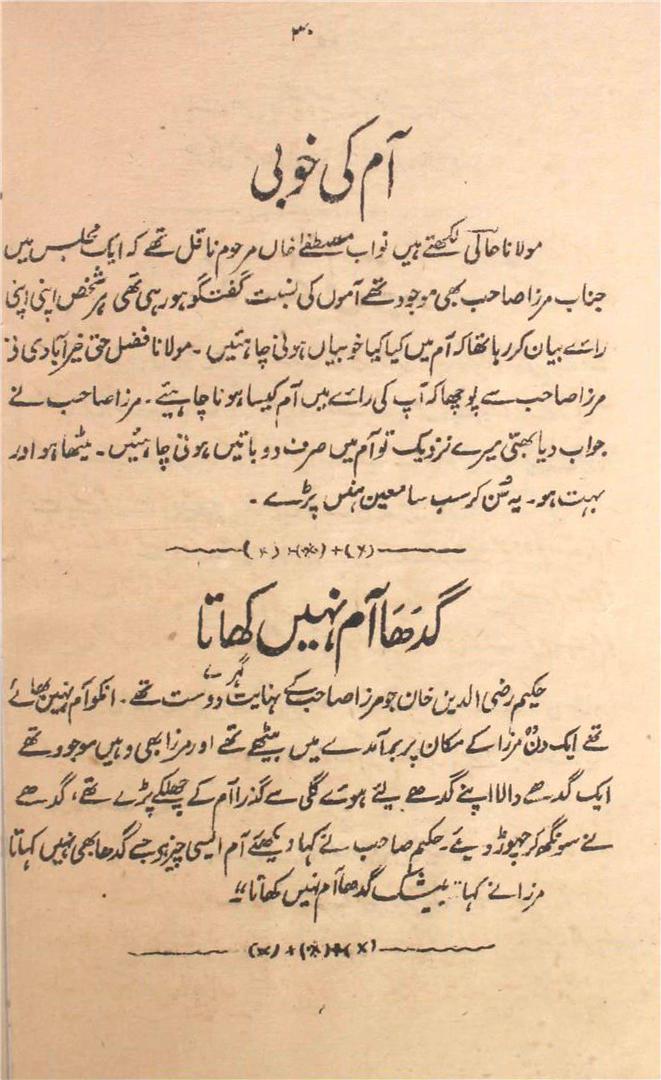 ۳۰
آم کی خوبی
مولانا حالی لکھتے ہیں نواب مصطفےٰ خاں مرحوم ناقل تھے کہ ایک مجلس میں
جناب مرزا صاحب بھی موجود تھے آموں کی نسبت گفتگو ہو رہی تھی ہر شخص اپنی اپنی
رائے بیان کر رہا تھا کہ آم میں کیا کیا خوبیاں ہونی چاہئیں۔ مولانا فضل حق خیرآبادی نے
مرزا صاحب سے پوچھا کہ آپ کی رائے میں آم کیسا ہونا چاہیئے۔ مرزا صاحب نے
جواب دیا بھئی میرے نزدیک تو آم میں صرف دو باتیں ہونی چاہئیں۔ میٹھا ہو اور
بہت ہو۔ یہ سُن کر سب سامعین ہنس پڑے۔
گدَھَا آم نہیں کھاتا
حکیم رضی الدین خان جو مرزا صاحب کے نہایت گہرے دوست تھے۔ انکو آم نہیں بھاتے
تھے ایک دن وہ مرزا کے مکان پر برآمدے میں بیٹھے تھے اور مرزا بھی وہیں موجود تھے
ایک گدھے والا اپنے گدھے لئے ہوئے گلی سے گذرا آم کے چھلکے پڑے تھے، گدھے
نے سونگھ کر چھوڑ دیئے۔ حکیم صاحب نے کہا دیکھئے آم ایسی چیز ہے جسے گدھا بھی نہیں کہاتا
مرزا نے کہا "بیشک گدھا آم نہیں کھاتا"